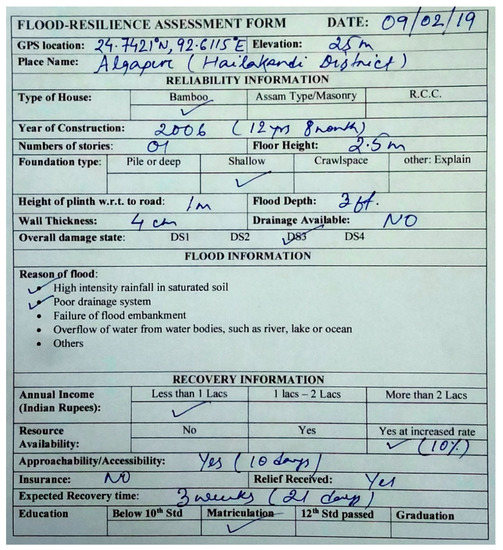 FLOOD-RESILIENCE ASSESSMENT FORM DATE: 09/02/19
GPS location: 24.7421°N, 92.6115°E Elevation: 25m
Place Name: Algapur (Hailakandi District)
RELIABILITY INFORMATION
Type of House: Bamboo Assam Type/Masonry R.C.C.
✓
Year of Construction: 2006 (12 yrs 8 month)
Numbers of stories: 01 Floor Height: 2.5m
Foundation type: Pile or deep Shallow Crawlspace other: Explain
✓
Height of plinth w.r.t. to road: 1m Flood Depth: 3 ft.
Wall Thickness: 4 cm Drainage Available: NO
Overall damage state: DS1 DS2 ✓DS3 DS4
FLOOD INFORMATION
Reason of flood:
✓ High intensity rainfall in saturated soil
✓ Poor drainage system
• Failure of flood embankment
• Overflow of water from water bodies, such as river, lake or ocean
• Others
RECOVERY INFORMATION
Annual Income Less than 1 Lacs 1 lacs – 2 Lacs More than 2 Lacs
(Indian Rupees): ✓
Resource No Yes Yes at increased rate
Availability: ✓ (10%)
Approachability/Accessibility: Yes (10 days)
Insurance: NO Relief Received: Yes
Expected Recovery time: 3 weeks (21 days)
Education Below 10th Std Matriculation 12th Std passed Graduation
✓